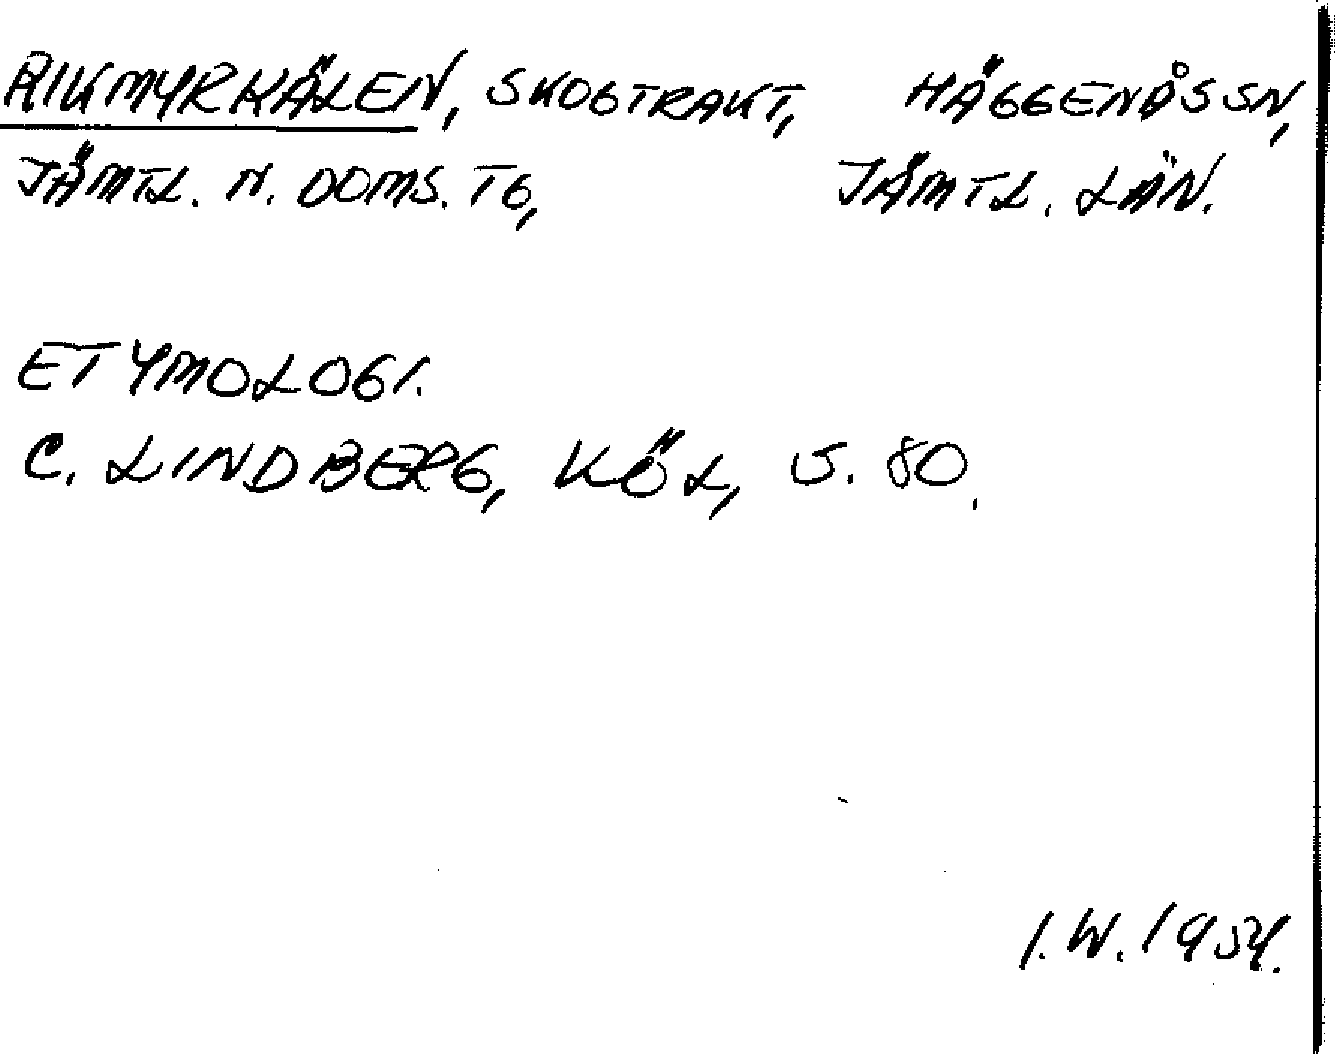 RIKMYRKÄLEN, SKOGTRAKT, HÄGGENÅS SN,
JÄMTL. N. DOMS. TG, JÄMTL. LÄN.
ETYMOLOGI.
C. LINDBERG, KÖL, S. 80.
I.W. 1954.